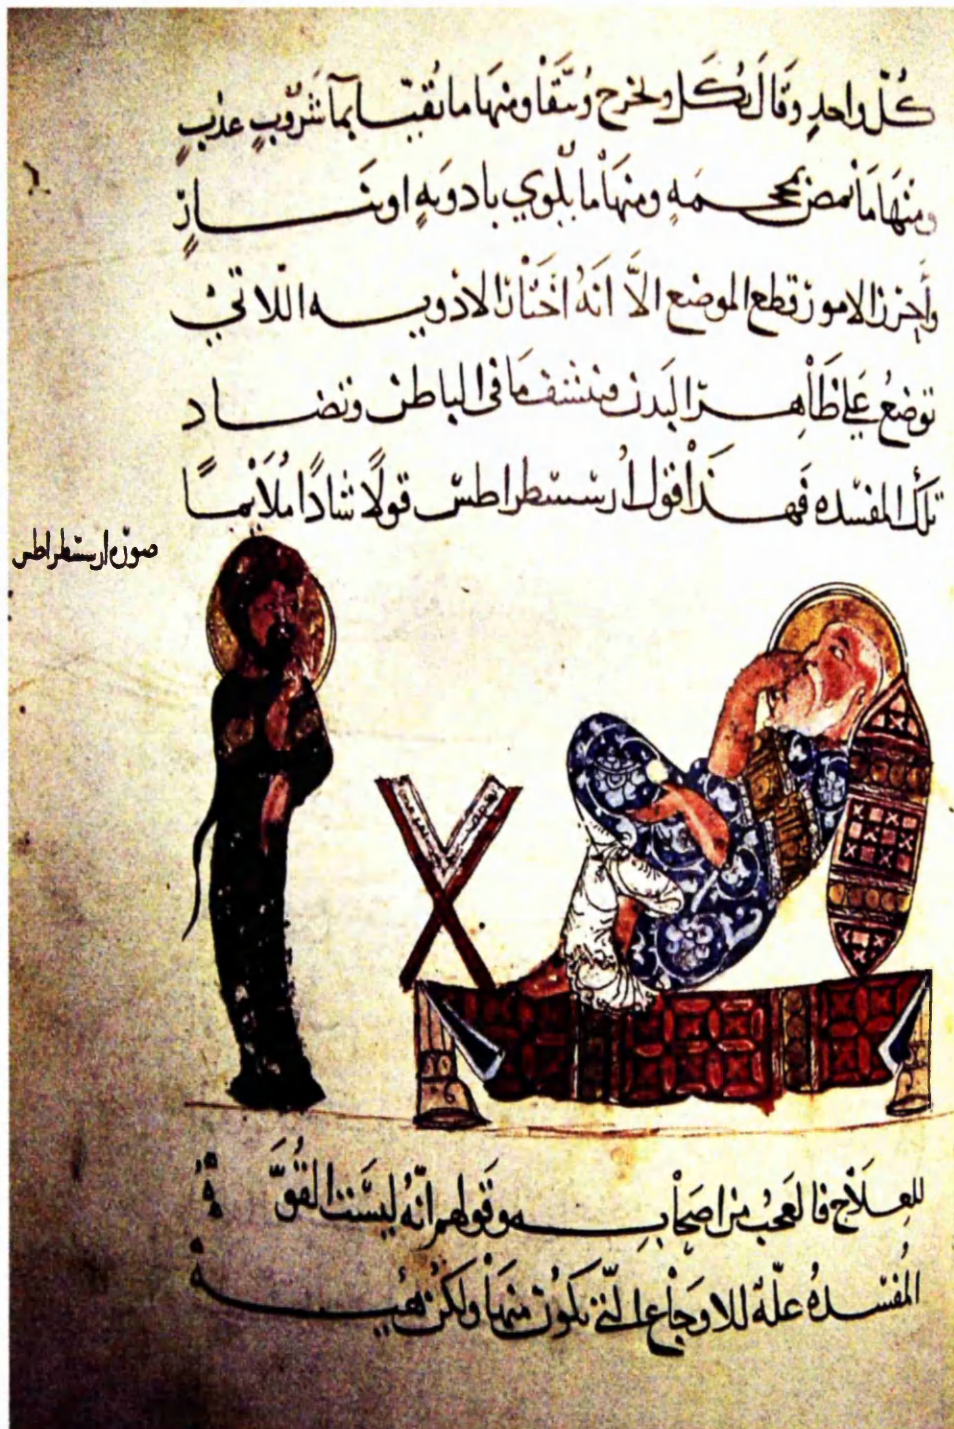 كُلّ واحدٍ وقَالَ بُكَل ولخرج وتَنقَا ومنهَا ما تقيّــا بمآ شَرُوبٍ عذبٍ
ومنهَا مَا يمص بمحجمَهٍ ومنهَاْ ما بلّوي بادويَهٍ او بنَــارٍ
وأحزر الامور قطع الموضع الاَّ انَهُ اخَتَار الادويــه اللّاتيْ
توضعُ عَلى ظَاْهِــر البَدن فتنشف مَا فى الباطن وتضــاد
تلكَ المفسّده فَهــذَاْ قول ارسسطراطسّ قولًا شادًا مُلَايمًــا
صورة ارسسطراطس
للعِــلَاْج فالعَجبُ من اصحَاْبِــه وقَولهم انّهُ ليسَت القوَّهُ
المُفسّــدهُ علّة للاوجَاْع الّتى تكوُن منهَاْ ولكن هيــه